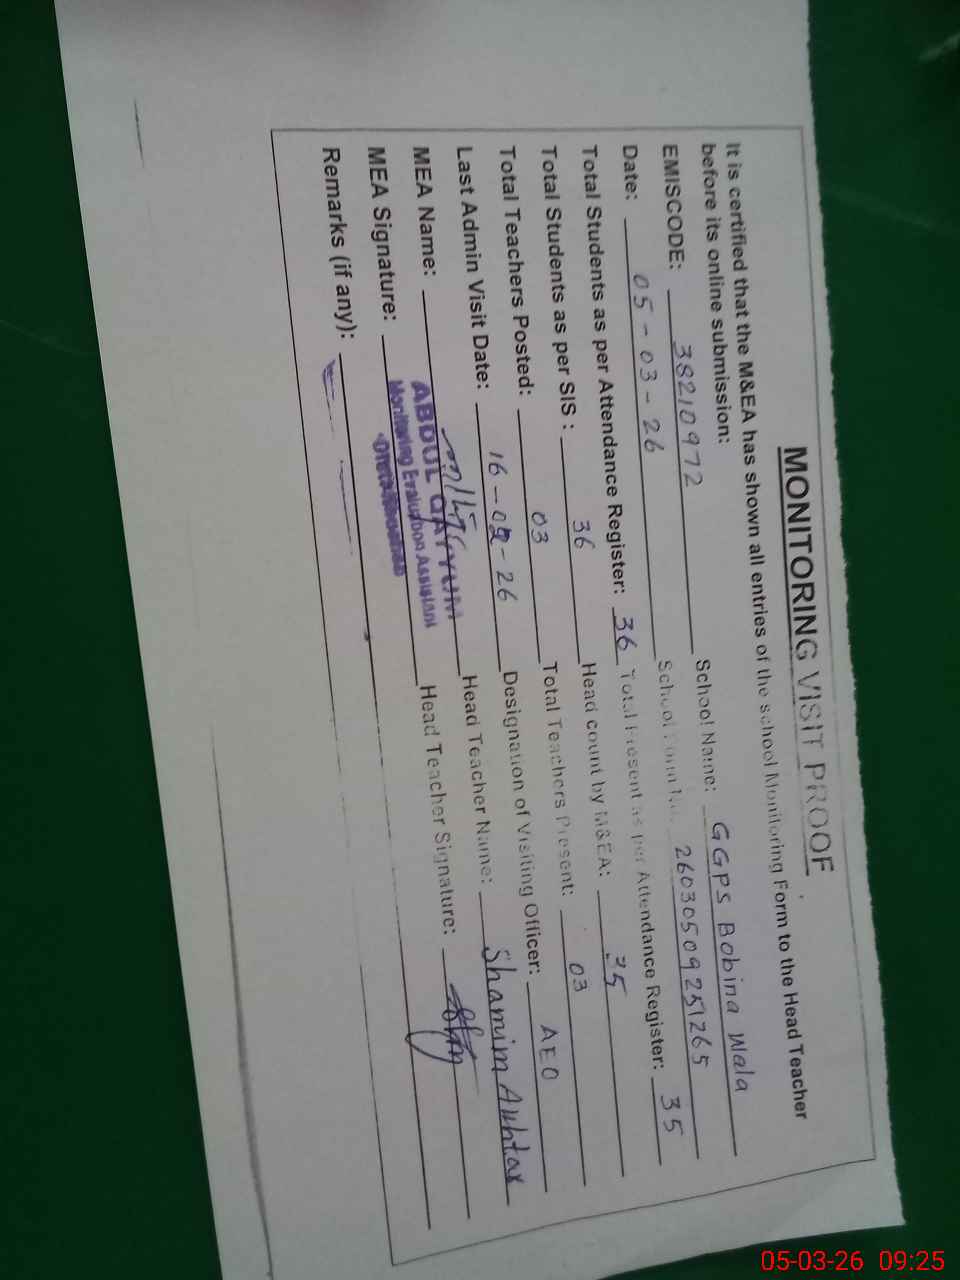 MONITORING VISIT PROOF
It is certified that the M&EA has shown all entries of the school Monitoring Form to the Head Teacher
before its online submission:
EMISCODE: 38210972 School Name: GGPS Bobina Wala
Date: 05-03-26 School Form No. 26030509251265
Total Students as per Attendance Register: 36 Total Present as per Attendance Register: 35
Total Students as per SIS : 36 Head count by M&EA: 35
Total Teachers Posted: 03 Total Teachers Present: 03
Last Admin Visit Date: 16-02-26 Designation of Visiting Officer: AEO
MEA Name: ABDUL QAYYUM Head Teacher Name: Shamim Akhtar
Monitoring Evaluation Assistant
MEA Signature: Head Teacher Signature:
Remarks (if any):
05-03-26 09:25